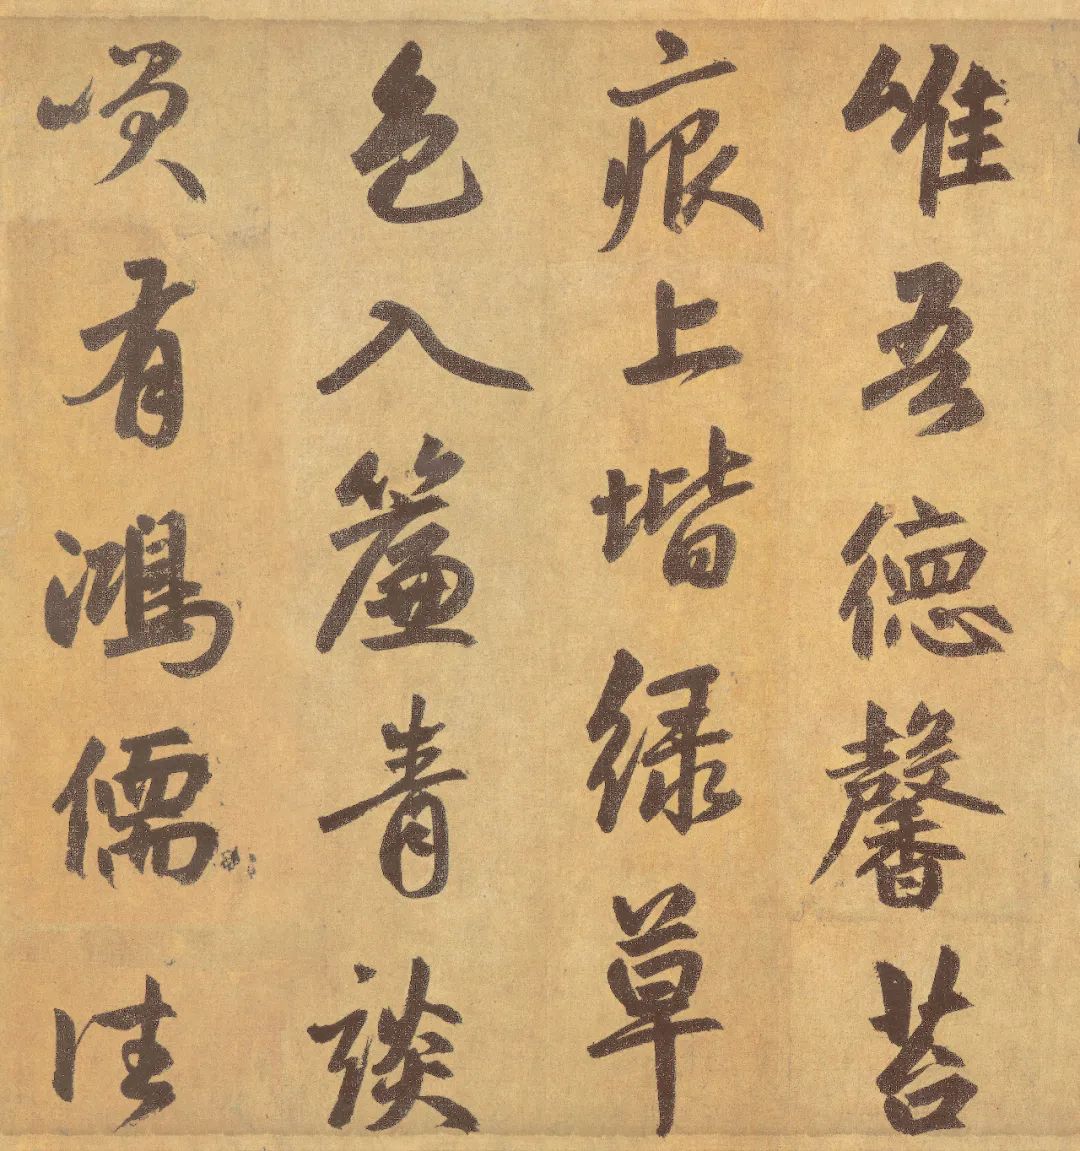 唯吾德馨苔
痕上堦绿草
色入簾青談
咲有鴻儒往